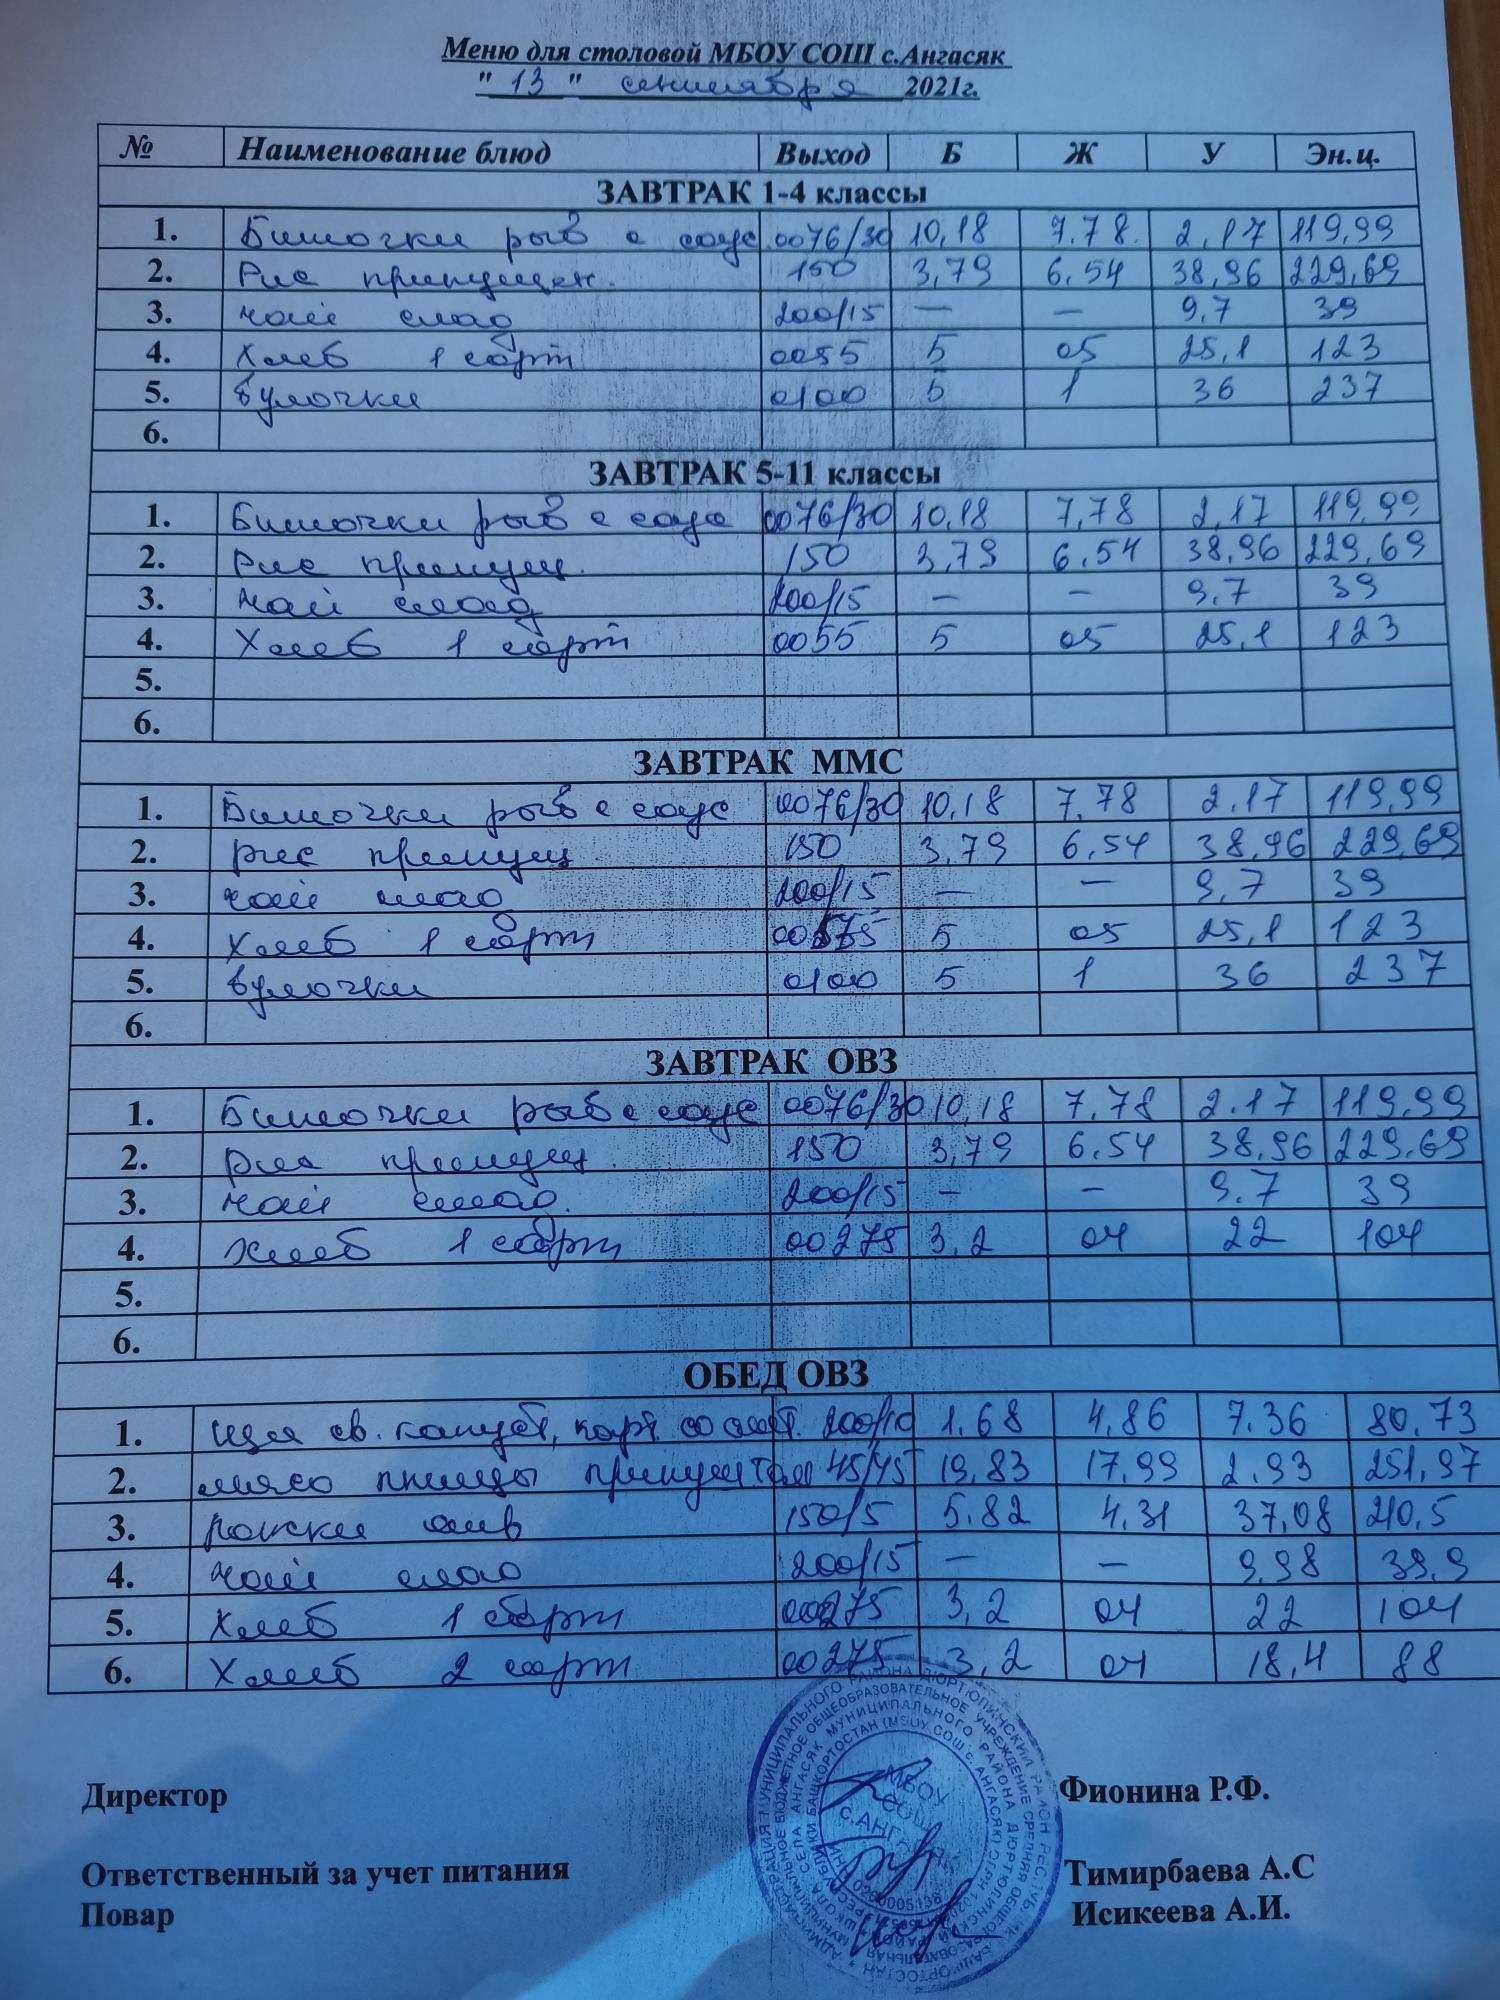 Меню для столовой МБОУ СОШ с.Ангасяк
" 13 " сентября 2021г.
№ Наименование блюд Выход Б Ж У Эн.ц.
ЗАВТРАК 1-4 классы
1. Биточки рыб с соус 0076/30 10,18 7.78. 2,17 119,99
2. Рис припущен. 150 3,79 6,54 38,96 229,69
3. чай слад 200/15 — — 9,7 39
4. Хлеб 1 сорт 0055 5 05 25,1 123
5. булочки 0100 5 1 36 237
6.
ЗАВТРАК 5-11 классы
1. Биточки рыб с соус 0076/30 10,18 7,78 2,17 119,99
2. Рис припущ. 150 3,79 6,54 38,96 229,69
3. чай слад 200/15 — — 9,7 39
4. Хлеб 1 сорт 0055 5 05 25,1 123
5.
6.
ЗАВТРАК ММС
1. Биточки рыб с соус 0076/30 10,18 7,78 2,17 119,99
2. рис припущ 150 3,79 6,54 38,96 229,69
3. чай слад 200/15 — — 9,7 39
4. Хлеб 1 сорт 5 05 25,1 123
5. булочки 0100 5 1 36 237
6.
ЗАВТРАК ОВЗ
1. Биточки рыб с соус 0076/30 10,18 7,78 2.17 119,99
2. рис припущ. 150 3,79 6,54 38,96 229,69
3. чай слад. 200/15 — — 9.7 39
4. хлеб 1 сорт 00275 3,2 04 22 104
5.
6.
ОБЕД ОВЗ
1. щи св. капуст, карт. со смет. 200/10 1,68 4,86 7.36 80,73
2. мясо птицы припущ 45/45 19,83 17,99 2.93 251,97
3. рожки отв 150/5 5,82 4,31 37,08 210,5
4. чай слад 200/15 — — 9,98 39,9
5. Хлеб 1 сорт 00275 3,2 04 22 104
6. Хлеб 2 сорт 00275 3,2 04 18,4 88
Директор Фионина Р.Ф.
МБОУ
СОШ
Ответственный за учет питания Тимирбаева А.С
Повар Исикеева А.И.